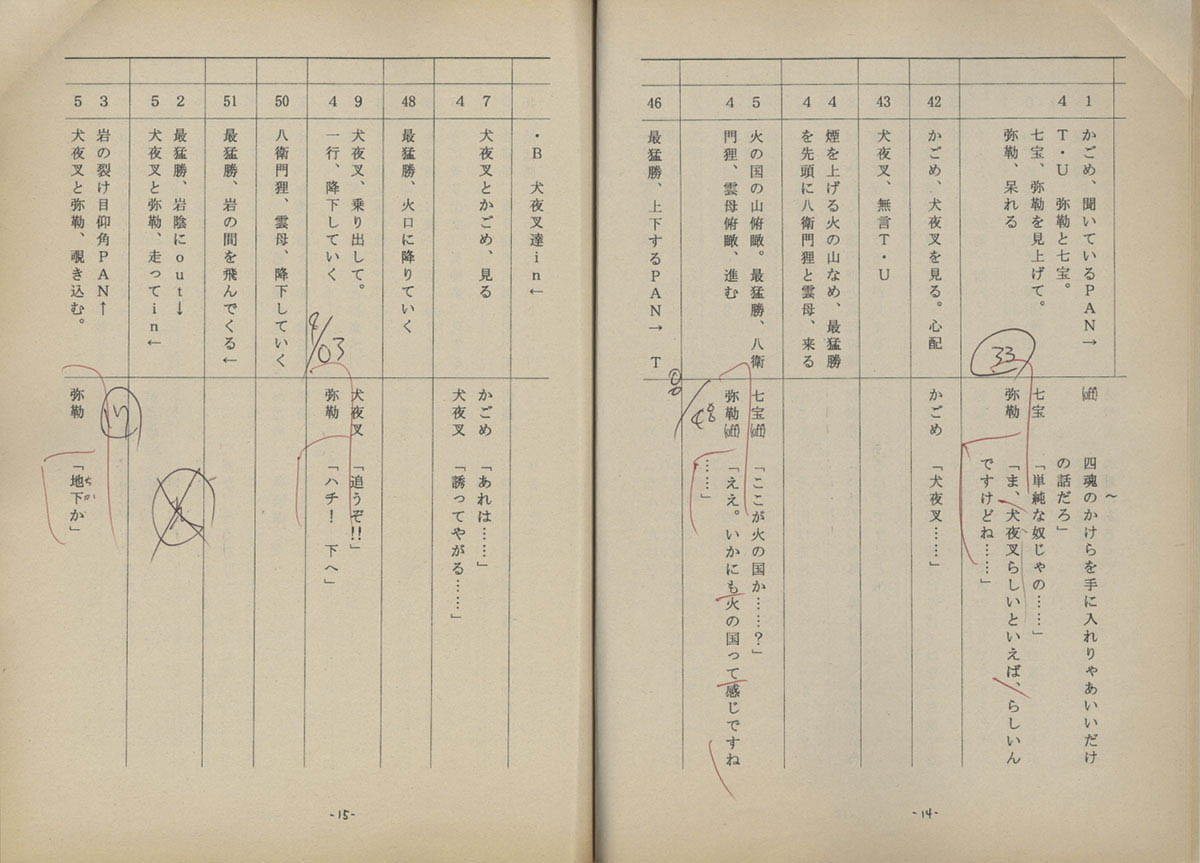 1
かごめ、聞いているPAN→
4
T・U　弥勒と七宝。
七宝、弥勒を見上げて。
弥勒、呆れる
(off)
四魂のかけらを手に入れりゃあいいだけ
の話だろ」
七宝
「単純な奴じゃの……」
弥勒
「ま、犬夜叉らしいといえば、らしいん
ですけどね……」
33
42
かごめ、犬夜叉を見る。心配
かごめ
「犬夜叉……」
43
犬夜叉、無言T・U
4
煙を上げる火の山なめ、最猛勝
4
を先頭に八衛門狸と雲母、来る
5
火の国の山俯瞰。最猛勝、八衛
4
門狸、雲母俯瞰、進む
七宝(off)
「ここが火の国か……？」
弥勒(off)
「ええ。いかにも火の国って感じですね
……」
46
最猛勝、上下するPAN→　T
-14-
・B　犬夜叉達in←
7
犬夜叉とかごめ、見る
4
かごめ
「あれは……」
犬夜叉
「誘ってやがる……」
48
最猛勝、火口に降りていく
9
犬夜叉、乗り出して。
4
一行、降下していく
犬夜叉
「追うぞ!!」
弥勒
「ハチ！　下へ」
50
八衛門狸、雲母、降下していく
51
最猛勝、岩の間を飛んでくる←
2
最猛勝、岩陰にout↓
5
犬夜叉と弥勒、走ってin←
3
岩の裂け目仰角PAN↑
5
犬夜叉と弥勒、覗き込む。
弥勒
「地下か」
ちか
-15-